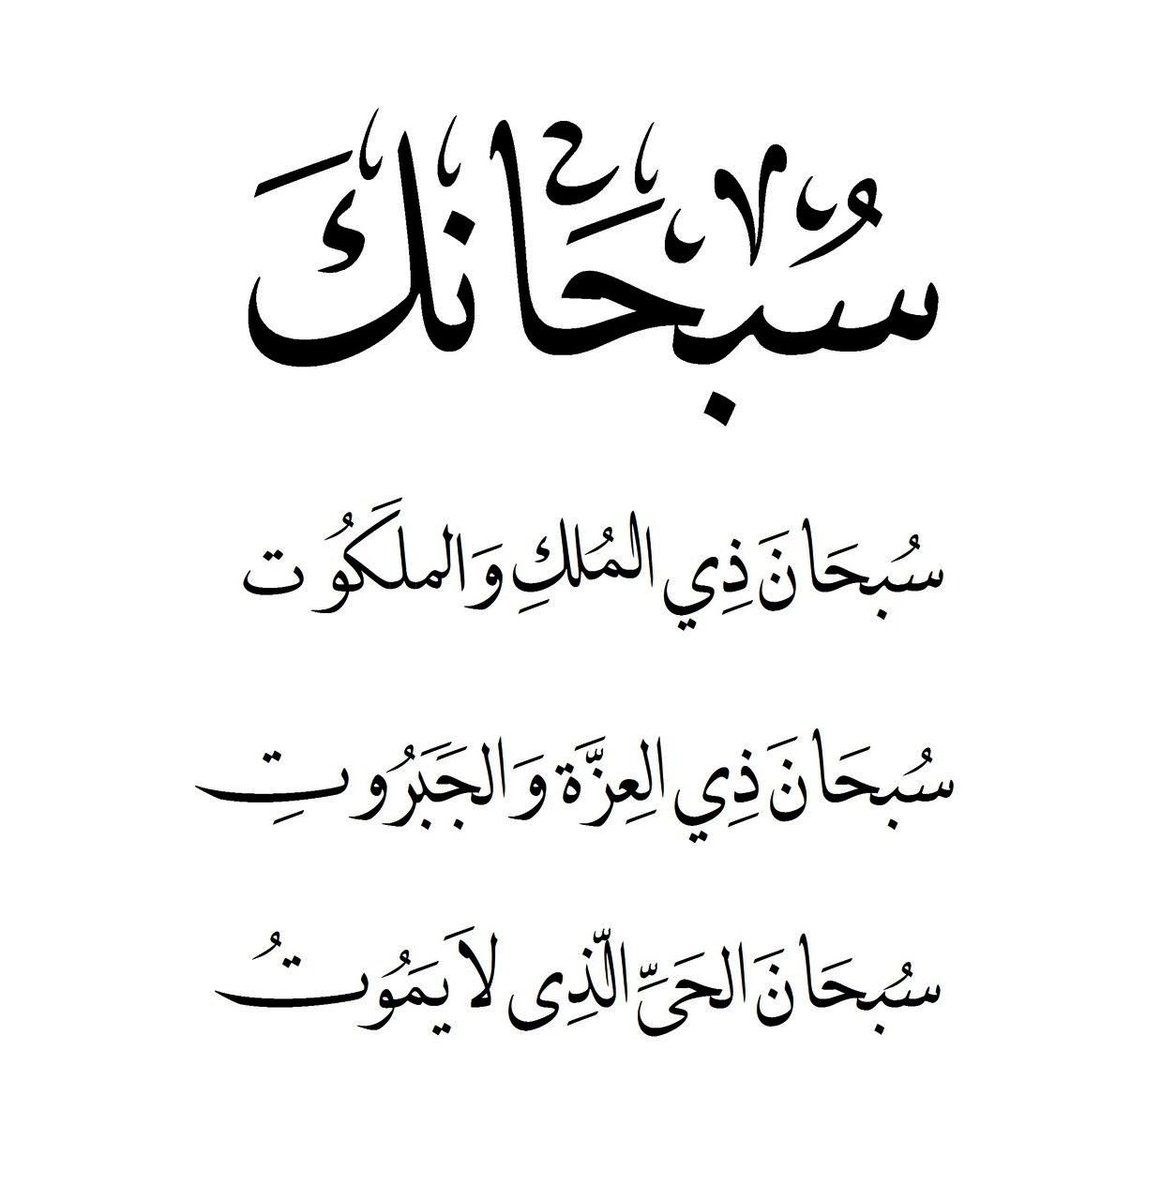 سُبحَانكَ
سُبحَانَ ذِي المُلكِ وَالملَكُوت
سُبحَانَ ذِي العِزَّة وَالجَبَرُوتِ
سُبحَانَ الحَىِّ الّذِى لاَ يَمَوُتُ